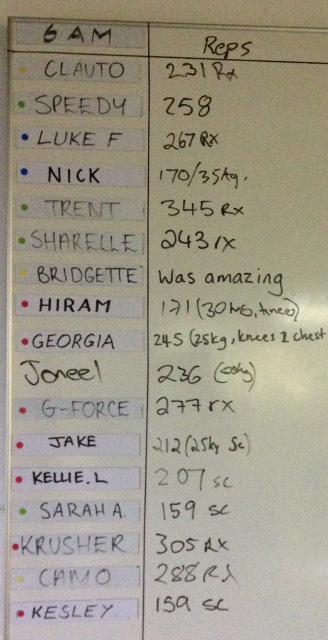 6 AM Reps
CLAUTO 231 Rx
SPEEDY 258
LUKE F 267 RX
NICK 170/35kg.
TRENT 345 Rx
SHARELLE 243 rx
BRIDGETTE Was amazing
HIRAM 171 (30 KG, knees)
GEORGIA 245 (25kg, knees 2 chest
Joneel 236
G-FORCE 277 rx
JAKE 212 (25kg Sc)
KELLIE.L 207 sc
SARAH A. 159 sc
KRUSHER 305 Rx
CAMO 288 Rx
KESLEY 159 sc